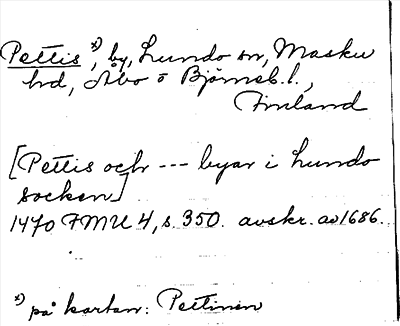 Pettis x), by, Lundo sn, Masku
hd, Åbo o Björneb. l.,
Finland
[Pettis och --- byar i Lundo
socken]
1470 FMU 4, s. 350. avskr. av 1686.
x) på kartan: Pettinen